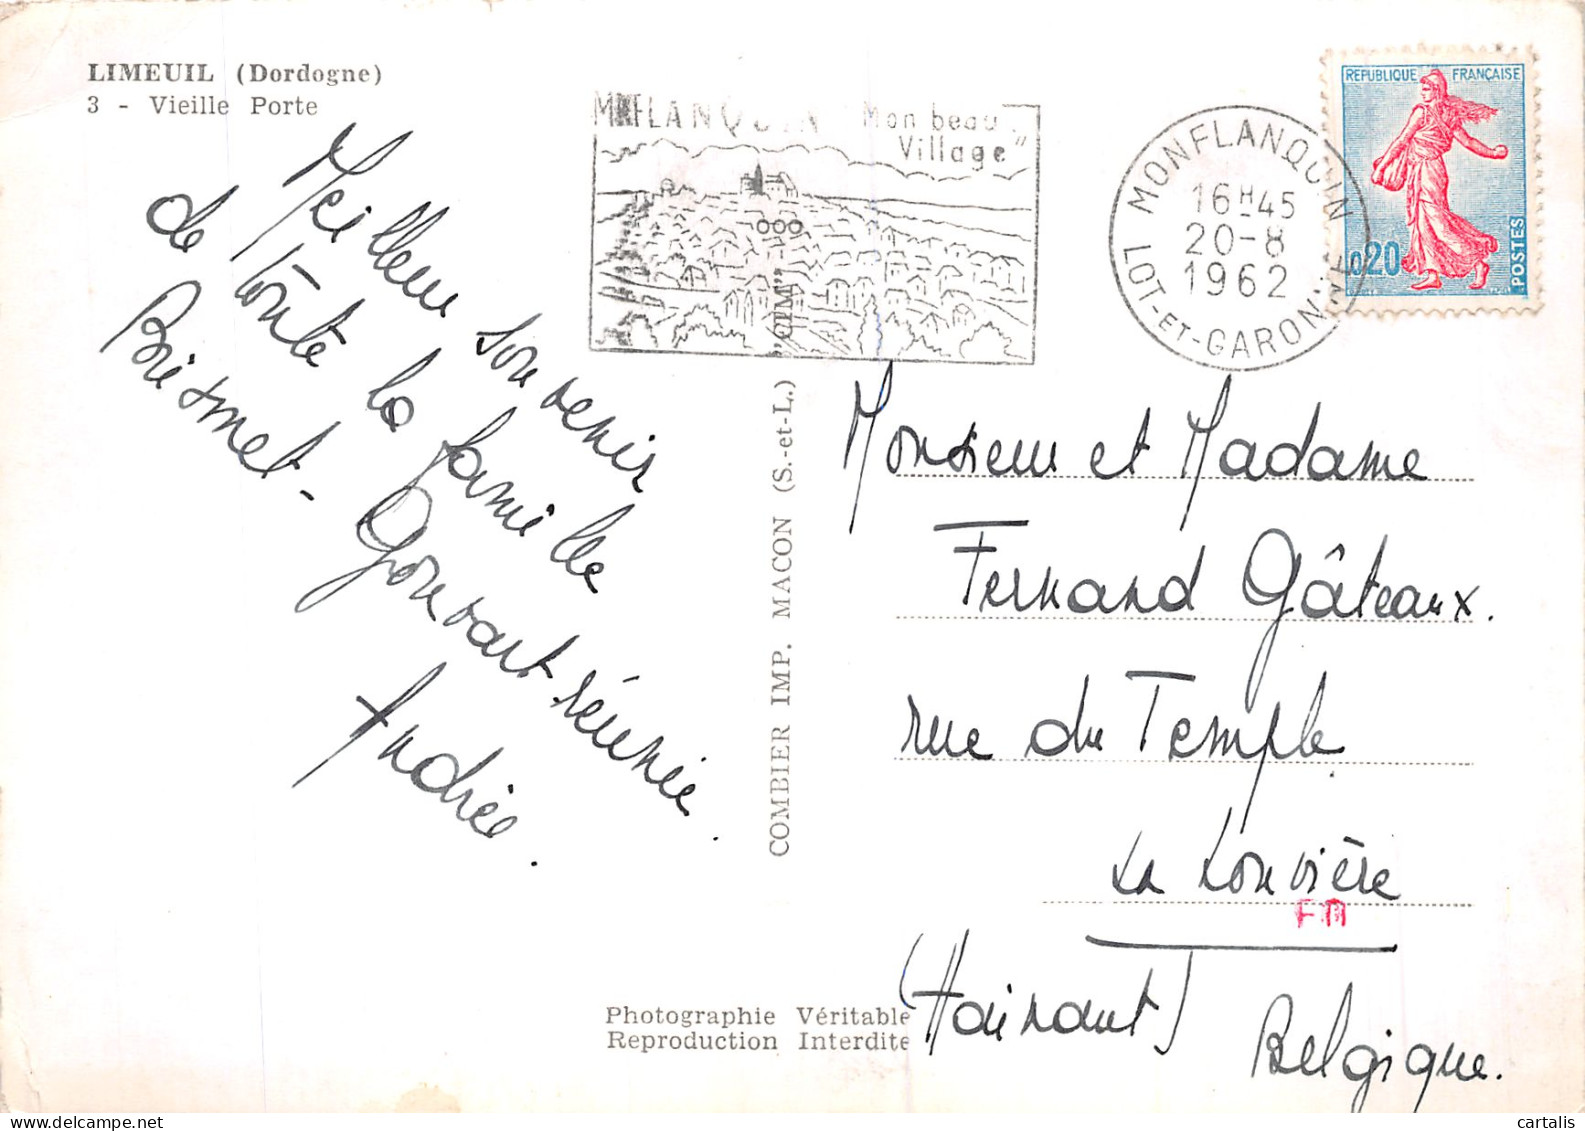 LIMEUIL (Dordogne)
3 - Vieille Porte
Meilleur souvenir
de toute la famille
Gouvart réunie.
Andrée.
MONFLANQUIN "Mon beau
Village"
MONFLANQUIN
16H45
20-8
1962
LOT-ET-GARONNE
REPUBLIQUE FRANÇAISE
0,20
POSTES
COMBIER IMP. MACON (S.-et-L.) "CIM"
Monsieur et Madame
Fernand Gâteaux.
rue du Temple
La Louvière
FM
(Hainaut)
Belgique.
Photographie Véritable
Reproduction Interdite
cartalis